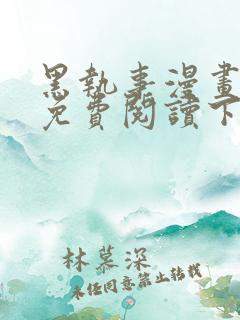 黑執事漫畫
免費閱讀下
林慕深
未经同意禁止转载